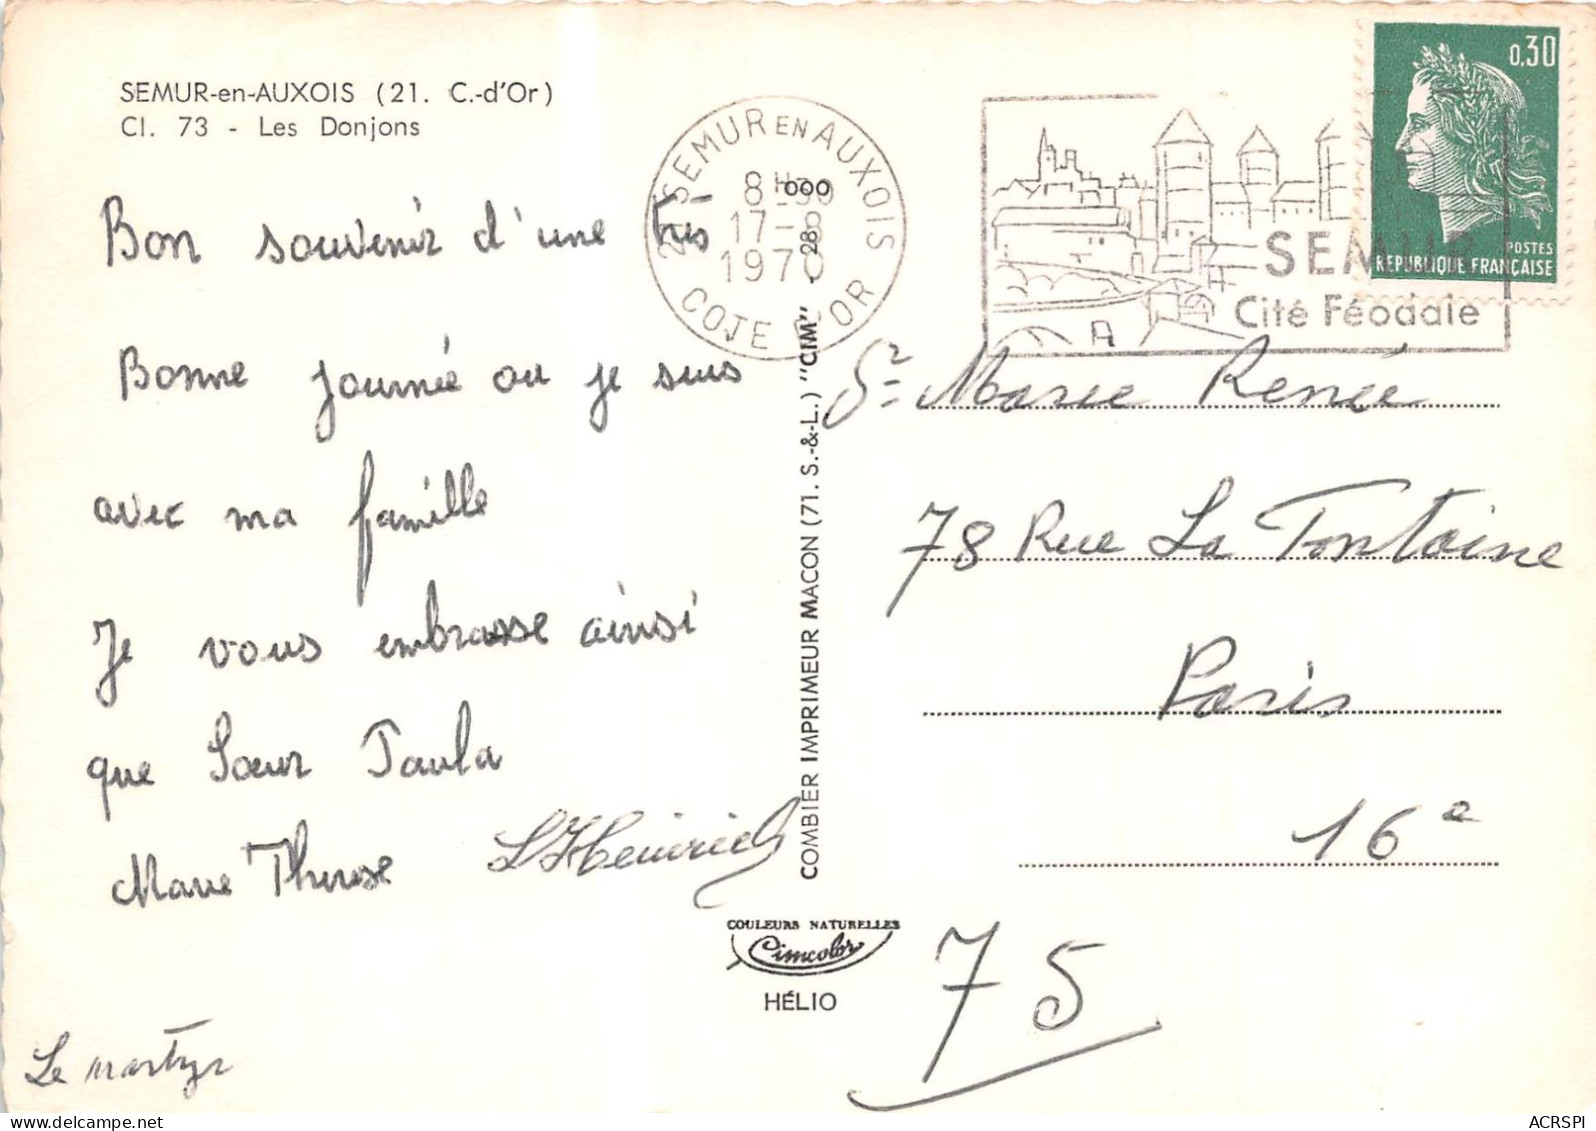 SEMUR-en-AUXOIS (21. C.-d'Or)
Cl. 73 - Les Donjons
Bon souvenir d'une très
Bonne journée ou je suis
avec ma famille
Je vous embrasse ainsi
que Sœur Paula
Marie Therese
Le martyr
21 SEMUR EN AUXOIS
17 -
1970
COTE D'OR
000
COMBIER IMPRIMEUR MACON (71. S.-&-L.) "CIM" - 28
COULEURS NATURELLES
Cimcolor
HÉLIO
0,30
POSTES
REPUBLIQUE FRANÇAISE
SEMUR
Cité Féodale
Sr Marie Renée
78 Rue La Fontaine
Paris
16e
75
ACRSPI